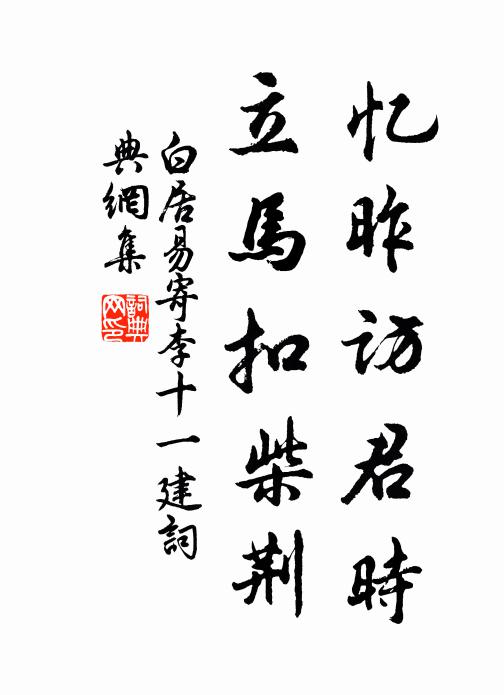 忆昨訪君時
立馬扣柴荆
白居易寄李十一建詞
典網集
詞典
网印